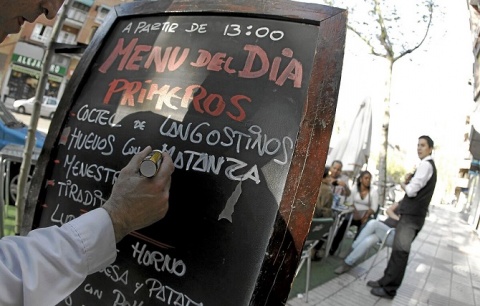 A PARTIR DE 13:00
MENU DEL DIA
PRIMEROS
COCTEL DE LANGOSTINOS
HUEVOS CON MATANZA
MENEST
TIRADI
HORNO
ESA Y PATAT